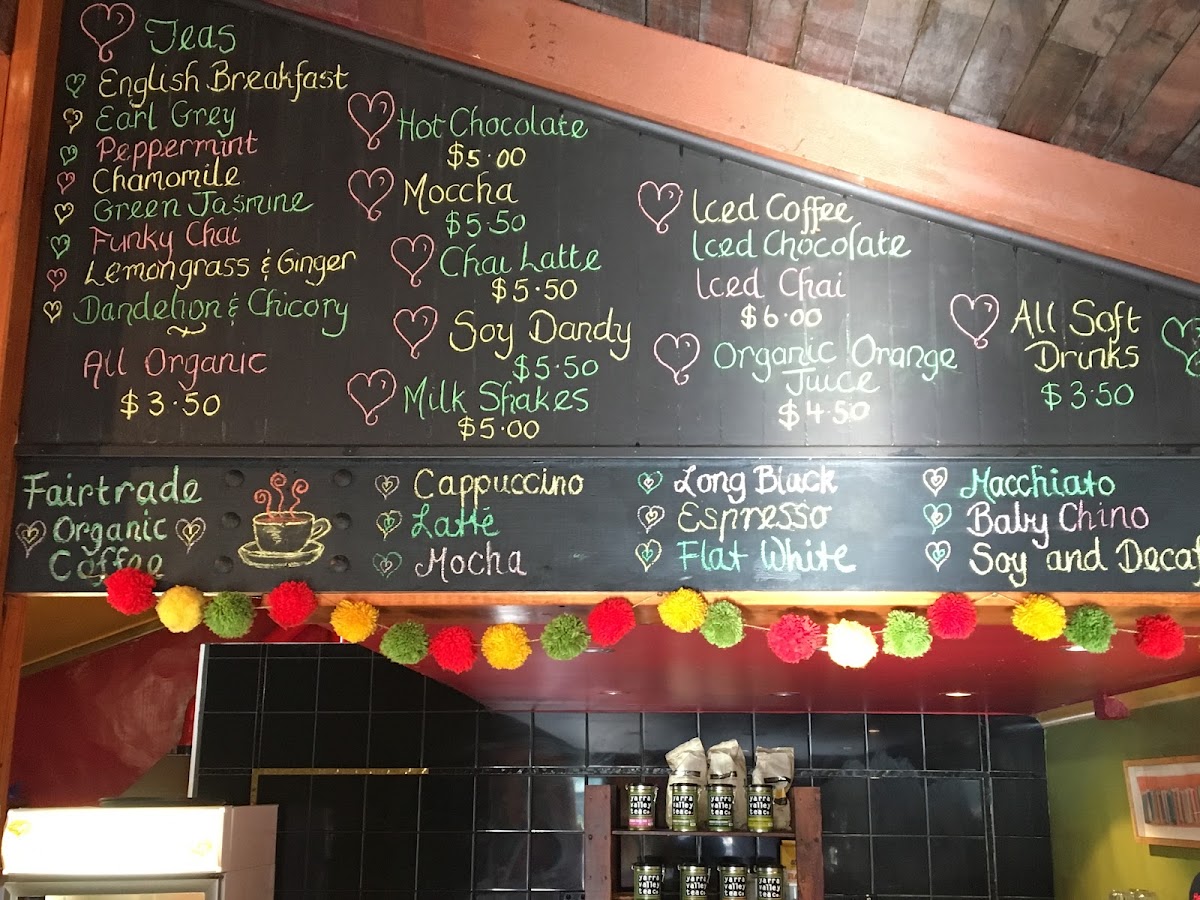 Teas
English Breakfast
Earl Grey
Peppermint
Chamomile
Green Jasmine
Funky Chai
Lemongrass & Ginger
Dandelion & Chicory
All Organic
$3.50
Hot Chocolate
$5.00
Moccha
$5.50
Chai Latte
$5.50
Soy Dandy
$5.50
Milk Shakes
$5.00
Iced Coffee
Iced Chocolate
Iced Chai
$6.00
Organic Orange
Juice
$4.50
All Soft
Drinks
$3.50
Fairtrade
Organic
Coffee
Cappuccino
Latté
Mocha
Long Black
Espresso
Flat White
Macchiato
Baby Chino
Soy and Decaf
yarra
valley
teaco
yarra
valley
teaco
yarra
valley
teaco
yarra
valley
teaco
yarra
valley
teaco
yarra
valley
teaco
yarra
valley
teaco
yarra
valley
teaco